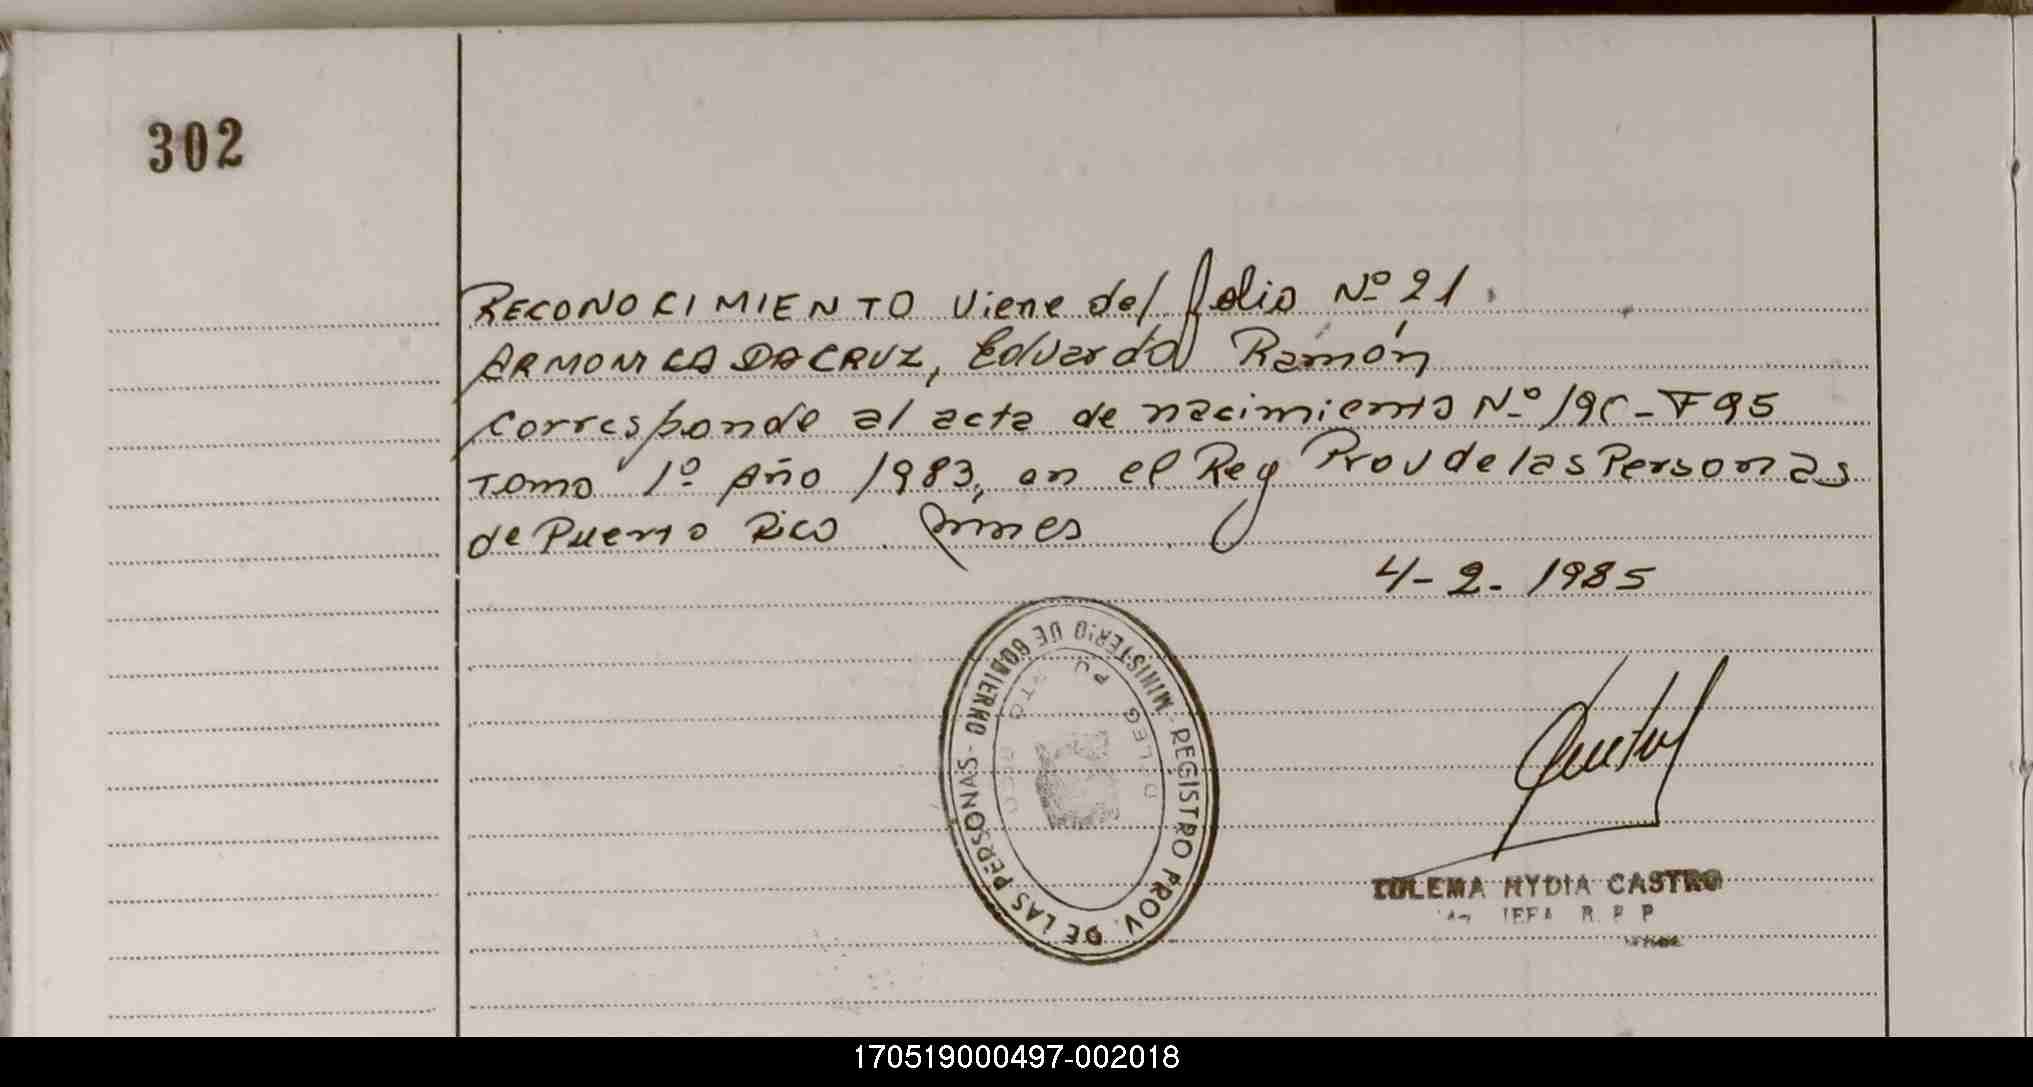 302
RECONOCIMIENTO viene del folio Nº 21.
ARMONICA DACRUZ, Eduardo Ramón
corresponde al acta de nacimiento Nº 19C-F95
Tomo 1º Año 1983, en el Reg Prov de las Personas
de Puerto Rico
4-2-1985
MINISTERIO DE GOBIERNO - REGISTRO PROV. DE LAS PERSONAS -
NYDIA CASTRO
JEFA R. P. P.
170519000497-002018